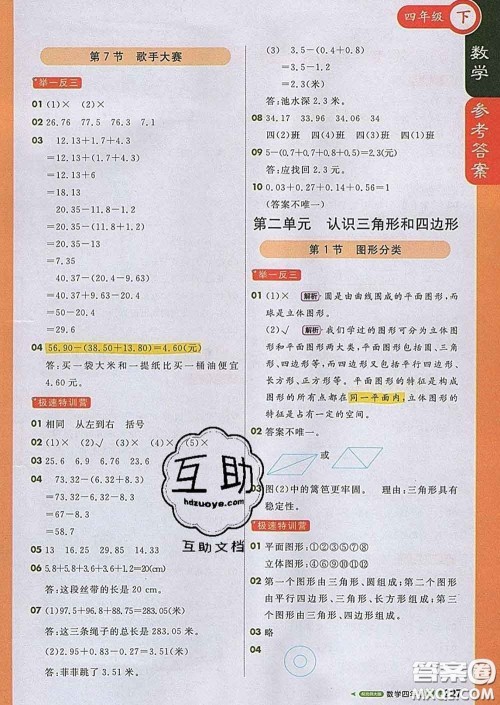 四年级 下
数学
参考答案
第7节 歌手大赛
举一反三
01 (1)× (2)×
02 26.76 77.5 76.3 7.1
03 12.13+1.7+4.3
=12.13+(1.7+4.3)
=12.13+6
=18.13
20.35-11.8-7.65
=20.35-(11.8+7.65)
=20.35-19.45
=0.9
37.4-(7.4+0.4)
=37.4-7.4-0.4
=30-0.4
=29.6
04 56.90-(38.50+13.80)=4.60(元)
答:买一袋大米和一提纸比买一桶油便宜
4.60元。
极速特训营
01 相同 从左到右 括号
02 (1)× (2)√ (3)× (4)× (5)×
03 25.6 6.9 4.76
04 73.32-(6.32-8.3)
67-8.3
=58.7
05 13 16.25 14.85
06 5.8+5.8+3.6+3.6+1.2=20(cm)
答:这段丝带的长是20 cm。
07 (1)97.5+96.8+88.75=283.05(米)
答:这三条绳子的总长是283.05米。
(2)2.95+0.83-0.27=3.51(米)
答:菲菲跳了3.51米。
(3) 3.5-(0.4+0.8)
=3.5-1.2
=2.3(米)
答:池水深2.3米。
08 34.17 33.96 34.06 34
四(2)班 四(4)班 四(3)班 四(1)班
09 5-(0.7+0.7+0.8+0.5)=2.3(元)
答:应找回2.3元。
10 0.03+0.27+0.14+0.56=1
(答案不唯一)
第二单元 认识三角形和四边形
第1节 图形分类
举一反三
01 (1)× 解析 圆是由曲线围成的平面图形,而
球是立体图形。
(2)√ 解析 我们学过的图形可分为立体图
形和平面图形两大类,平面图形包括圆、三角
形、四边形等,而四边形又包括平行四边形、
长方形、正方形等。平面图形的特征是构成
图形的所有点都在同一平面内,立体图形的
特征是占有一定的空间。
02 答案不唯一。
或
03 图(2)中的篱笆更牢固。 理由:三角形具有
稳定性。
极速特训营
01 平面图形:①④⑤⑥⑧
立体图形:②③⑦
02 第一个图形由三角形、圆组成;第二个图形
由平行四边形、三角形、长方形组成;第三个
图形由三角形、四边形组成。
03 略
04
互助
hdzuoye.com
互助文档
答案圈
MXQE.COM